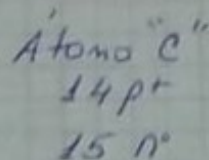 Átomo "C"
14 p+
15 n°